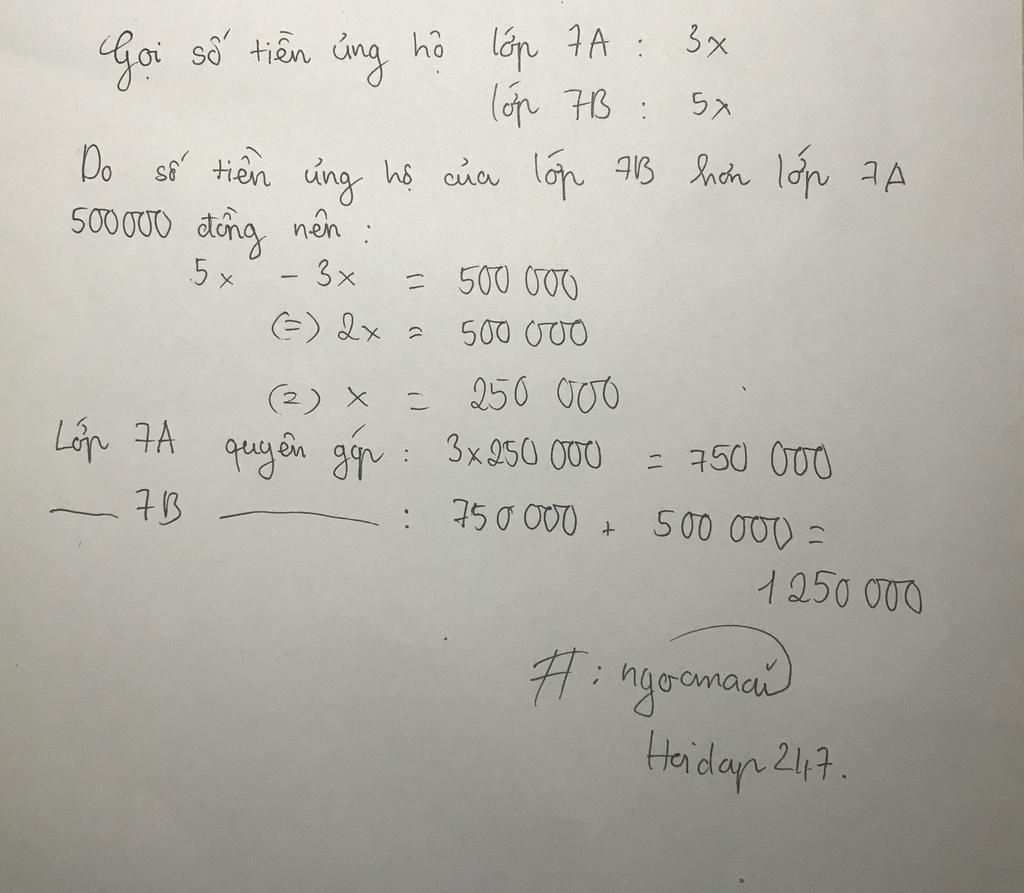 Gọi số tiền ủng hộ lớp 7A : 3x
lớp 7B : 5x
Do số tiền ủng hộ của lớp 7B hơn lớp 7A
500000 đồng nên :
5x - 3x = 500 000
(=) 2x = 500 000
(=) x = 250 000
Lớp 7A quyên góp : 3x250 000 = 750 000
— 7B — : 750 000 + 500 000 =
1 250 000
#: ngocmaci
Hoidap247.